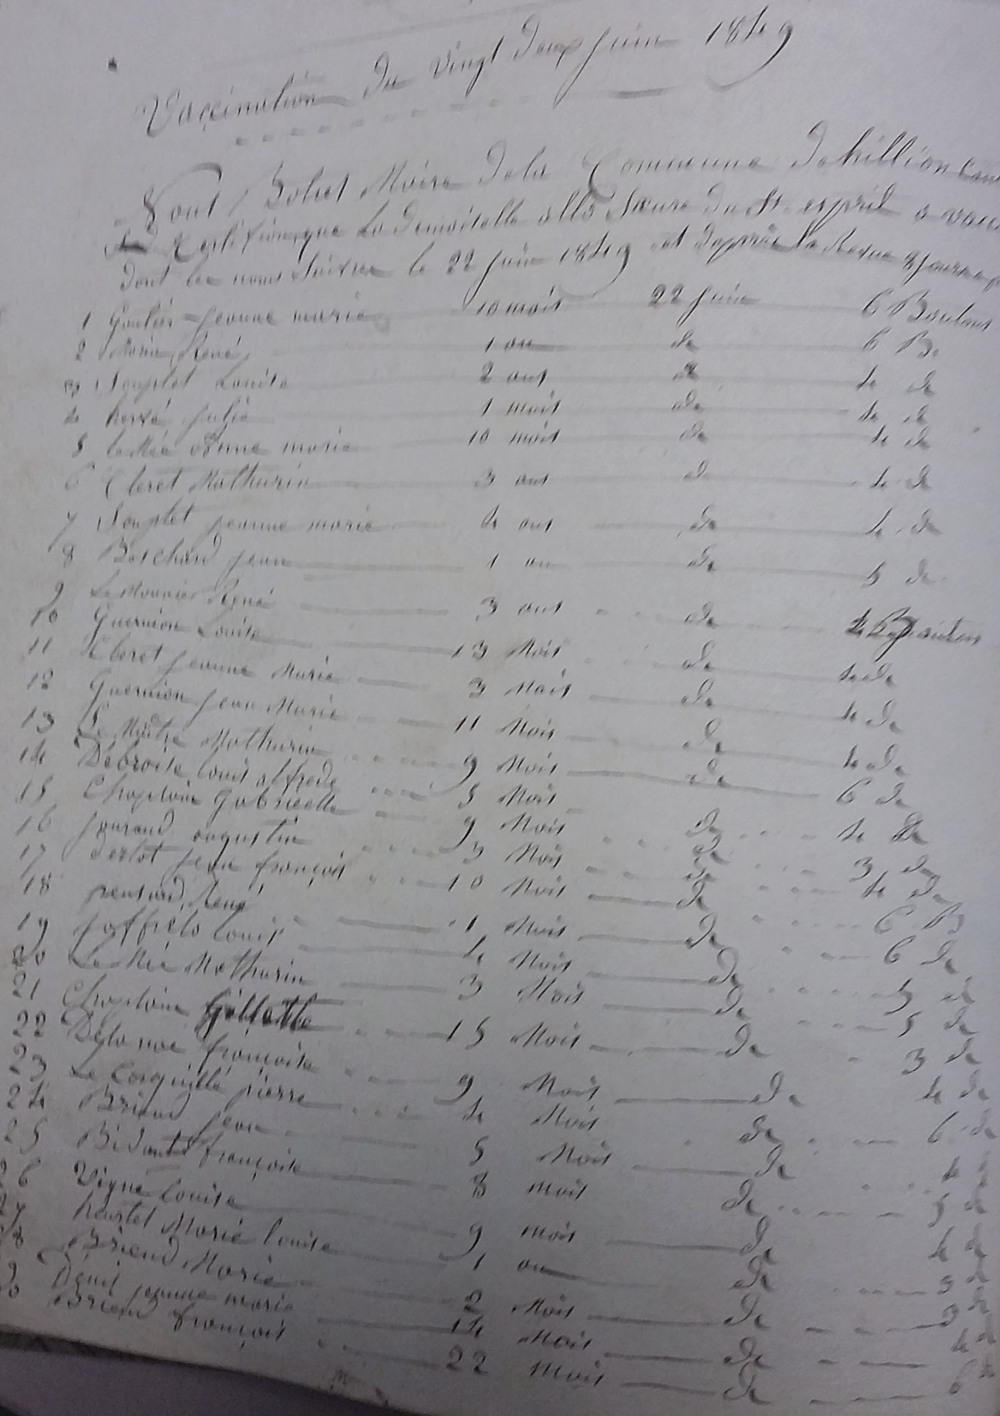 Vaccination du vingt deux juin 1849
Nous Bolcet Maire de la Commune d'hillion
Certifions que la demoiselle allo Sœure du St. esprit a
dont les noms Suivres le 22 juin 1849 et daprès la Revue
1 Goulier jeanne marie 10 mois 22 juin 6 Boutons
2 Morin René 1 an de 6 B.
3 Souplet Louise 2 ans de 4 de
4 hervé julie 1 mois de 4 de
5 le Mée Anne marie 10 mois de 4 de
6 Cleret Mathurin 3 ans de 4 de
7 Souplet jeanne marie 4 ans de 4 de
8 Boschard jean 1 an de 5 de
9 Le Monnier René 3 ans de 4 Boutons
10 Guernion Louise 13 Mois de 4 de
11 Cleret jeanne Marie 3 Mois de 4 de
12 Guernion jean Marie 11 Mois de 4 de
13 Le Maitre Mathurin 9 Mois de 6 de
14 Debroise louis alfrede 5 Mois de 4 de
15 Chaplain Gabrielle 9 Mois de 3 de
16 jouraud augustin 3 Mois de 4 de
17 derlot jean françois 10 Mois de 6 B
18 pensard René 1 Mois de 6 de
19 joffrelo louis 4 Mois de 5 de
20 Le Mée Mathurin 3 Mois de 5 de
21 Chaplain Gillette 15 Mois de 3 de
22 Delanoe françoise 9 Mois de 4 de
23 Le Corguillé pierre 4 Mois de 6 de
24 Briend jean 5 Mois de 4 de
25 Bidant françoise 8 mois de 5 de
26 Vigne louise 9 mois de 4 de
27 heurtel Marie louise 1 an de 3 de
28 Briend Marie 2 Mois de 3 de
9 Denis jeanne marie 14 Mois de 4 de
30 Briend françois 22 mois de 6